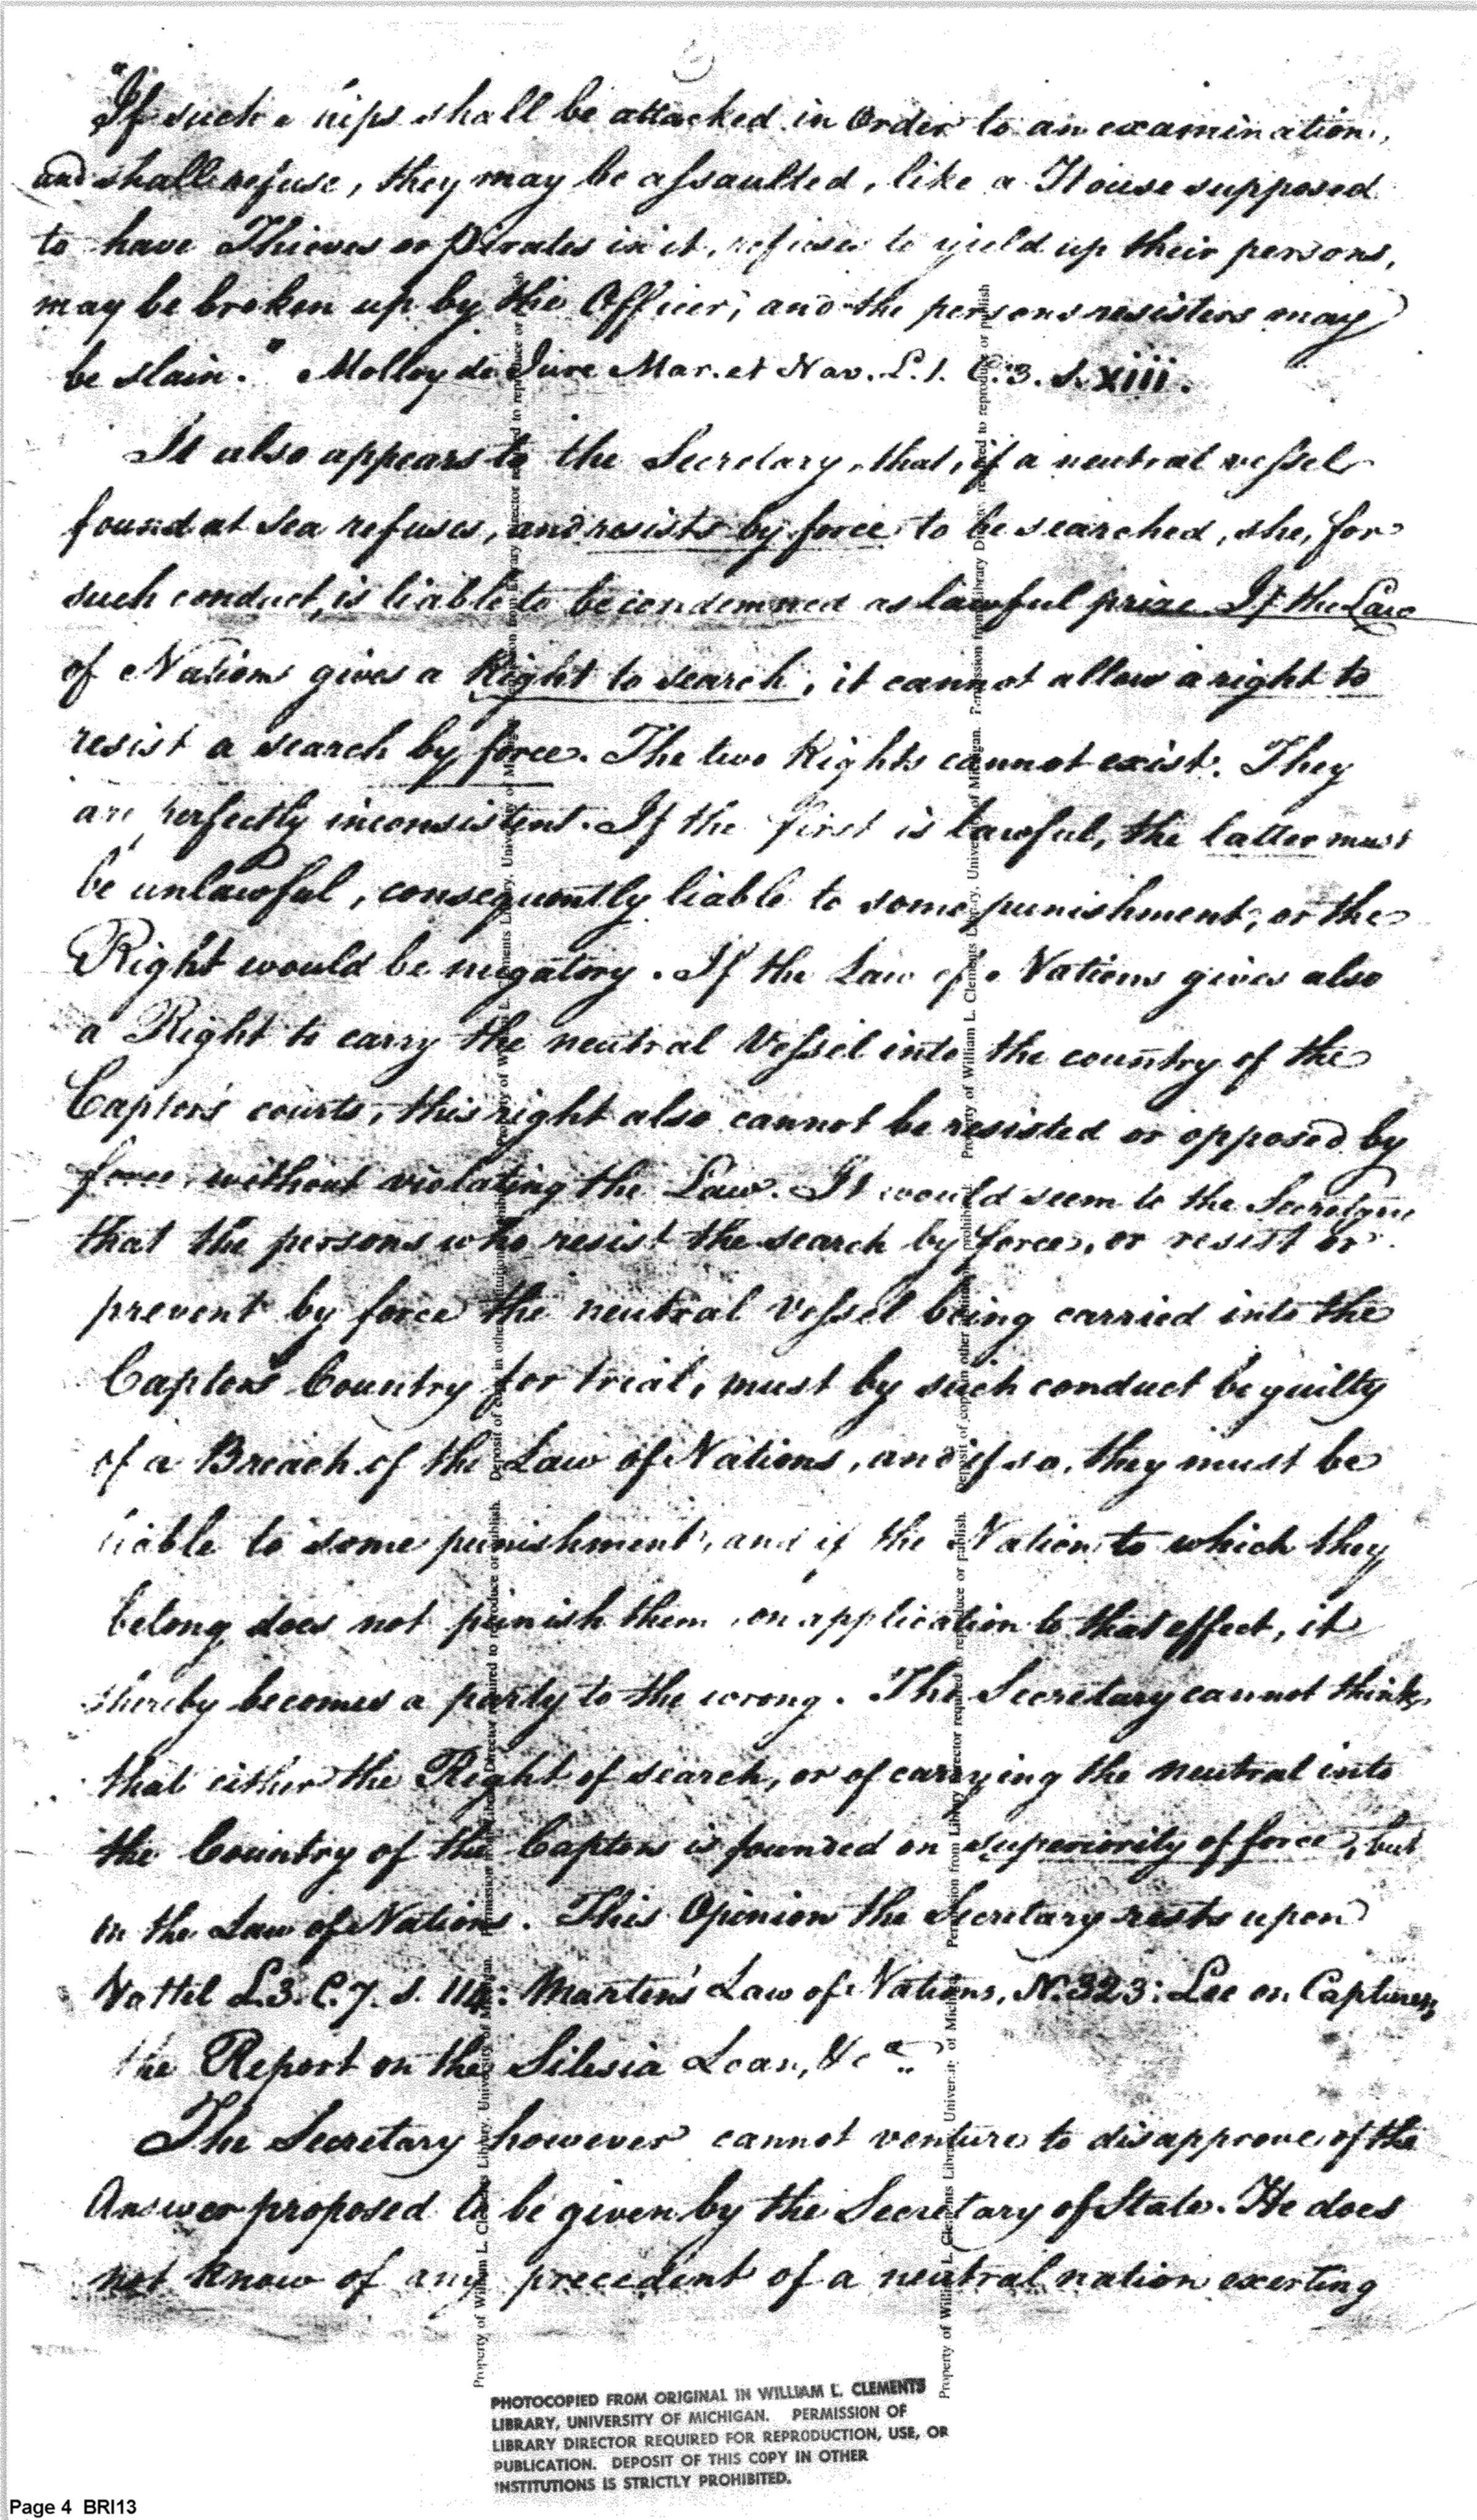 "If such ships shall be attacked in Order to an examination,
and shall refuse, they may be assaulted, like a House supposed
to have Thieves or Pirates in it, refuses to yield up their persons,
may be broken up by the Officer, and the persons resisters may
be slain." Molloy de Jure Mar. et Nav. L. 1. C. 3. S. xiii.
It also appears to the Secretary, that, if a neutral vessel
found at Sea refuses, and resists by force to be searched, she, for
such conduct, is liable to be condemned as lawful prize If the Law
of Nations gives a Right to search, it cannot allow a right to
resist a search by force. The two Rights cannot exist. They
are perfectly inconsistent. If the first is lawful, the latter must
be unlawful, consequently liable to some punishment, or the
Right would be nugatory. If the Law of Nations gives also
a Right to carry the neutral Vessel into the country of the
Captor's courts, this right also cannot be resisted or opposed by
force, without violating the Law. It would seem to the Secretary
that the persons who resist the search by force, or resist or
prevent by force the neutral Vessel being carried into the
Captors Country for trial, must by such conduct be guilty
of a Breach of the Law of Nations, and if so, they must be
liable to some punishment, and if the Nation to which they
belong does not punish them, on application to that effect, it
thereby becomes a party to the wrong. The Secretary cannot think,
that either the Right of search, or of carrying the neutral into
the Country of the Captors is founded on superiority of force, but
in the Law of Nations. This Opinion the Secretary rests upon
Vattel L. 3. C. 7. S. 114: Marten's Law of Nations, N. 323: Lee on Captures,
the Report on the Silesia Loan, &ca.
The Secretary however cannot venture to disapprove of the
Answer proposed to be given by the Secretary of State. He does
not know of any precedent of a neutral nation exerting
Property of William L. Clements Library, University of Michigan. Permission from Library Director required to reproduce or publish. Deposit of copy in other institutions prohibited.
Property of William L. Clements Library, University of Michigan. Permission from Library Director required to reproduce or publish
Property of William L. Clements Library, University of Michigan. Permission from Library Director required to reproduce or publish. Deposit of copy in other institutions prohibited.
Property of William L. Clements Library, University of Michigan. Permission from Library Director required to reproduce or publish
PHOTOCOPIED FROM ORIGINAL IN WILLIAM L. CLEMENTS
LIBRARY, UNIVERSITY OF MICHIGAN. PERMISSION OF
LIBRARY DIRECTOR REQUIRED FOR REPRODUCTION, USE, OR
PUBLICATION. DEPOSIT OF THIS COPY IN OTHER
INSTITUTIONS IS STRICTLY PROHIBITED.
Page 4 BRI13